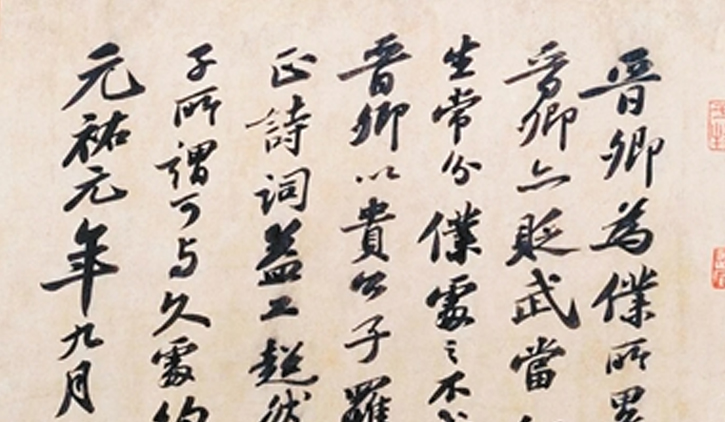 晉卿為僕所累
晉卿亦貶武當
生常分僕處〻不
晉卿以貴公子罹
正詩詞益工超然
子所謂可与久處約
元祐元年九月